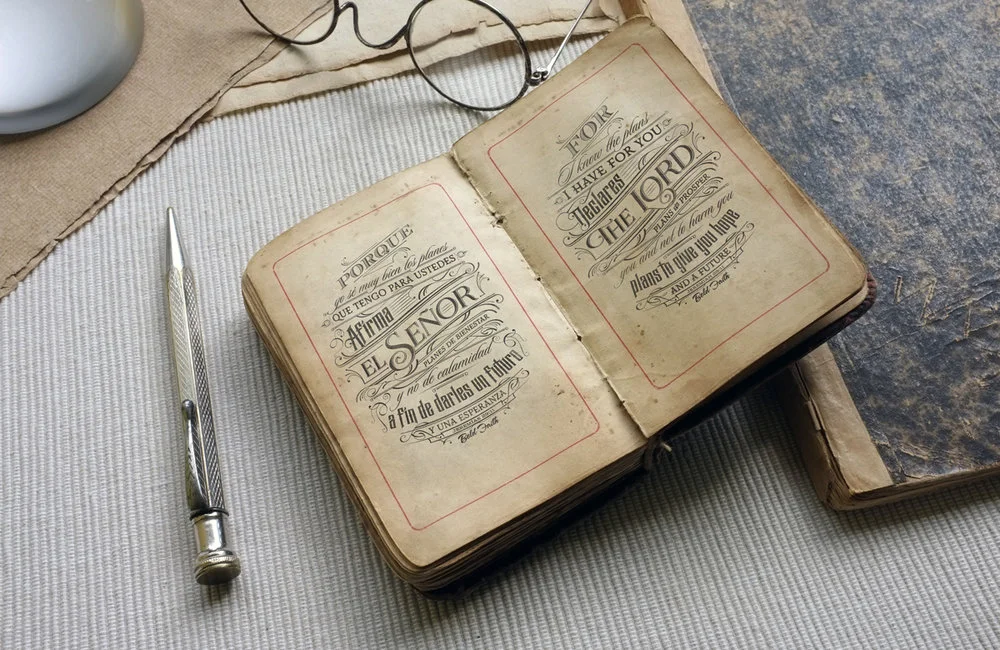 PORQUE
yo sé muy bien los planes
QUE TENGO PARA USTEDES
Afirma
EL SEÑOR
PLANES DE BIENESTAR
y no de calamidad
a fin de darles un futuro
Y UNA ESPERANZA
Bold Faith
FOR
I know the plans
I HAVE FOR YOU
Declares
THE LORD
PLANS to PROSPER
you and not to harm you
plans to give you hope
AND A FUTURE
Bold Faith